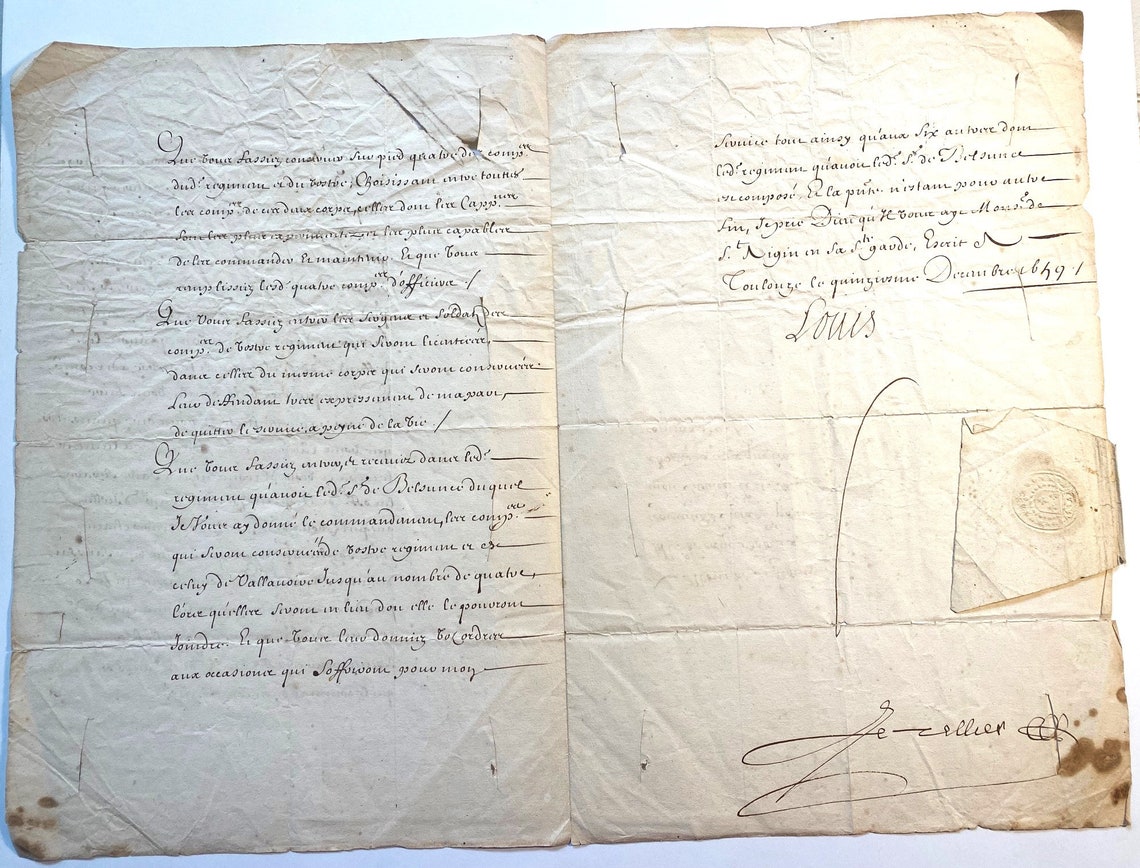 Que vous fassiez conserver sur pied quatre des comp.es
dud. regiment et du vostre, Choisissant entre toutes
les comp.es de ces deux corps, celles dont les Capp.nes
sont les plus experimentez et les plus capables
de les commander et maintenir, Et que vous
remplissiez lesd. quatre comp.es d'officiers /
Que vous fassiez entrer les sergens et soldatz des
comp.es de vostre regiment qui seront licentiées,
dans celles du mesme corps qui seront conservées
Leur deffendant tres expressement de ma part,
de quitter le service, a peyne de la vie /
Que vous fassiez entrer, et receviez dans led.
regiment qu'avoit led. S.r de Belsunce duquel
Je vous ay donné le commandement, les comp.es
qui seront conservées de vostre regiment et de
celuy de Vallavoire Jusqu'au nombre de quatre,
lors qu'elles seront en lieu d'ou elle le pourront
Joindre. Et que vous leur donniez vos ordres
aux occasions qui s'offriront pour mon
service tout ainsy qu'aux six autres dont
led. regiment qu'avoit led. S.r de Belsunce
est composé, Et la p.nte n'estant pour autre
fin, Je prie Dieu qu'Il vous aye Mons.r de
S.t en sa s.te garde, Escrit A
Toulouze le quinziesme Decembre 1659 /
Louis
Le Tellier